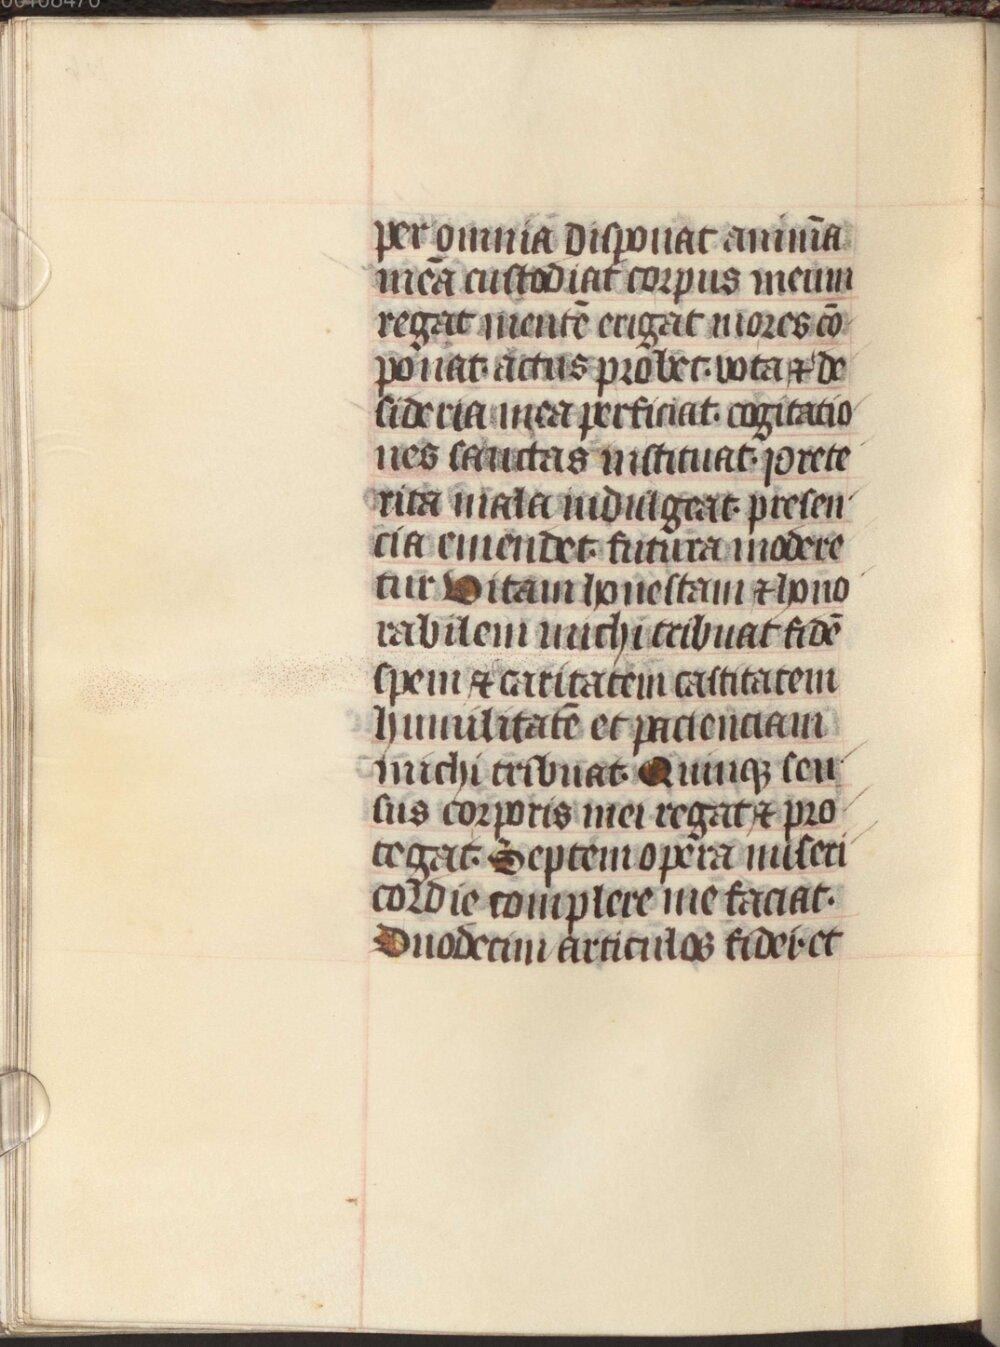 00408470
per omnia disponat animā
meā custodiat corpus meum
regat mentē erigat mores cō
ponat. actus probet. vota ⁊ de
sideria mea perficiat. cogitatio
nes sanctas instituat. prete
rita mala indulgeat. presen
cia emendet. futura modere
tur Vitam honestam ⁊ hono
rabilem michi tribuat fidē
spem ⁊ caritatem castitatem
humilitatē et pacienciam
michi tribuat. Quinqꝫ sen
sus corporis mei regat ⁊ pro
tegat. Septem opera miseri
cordie complere me faciat.
Duodecim articulos fidei. et